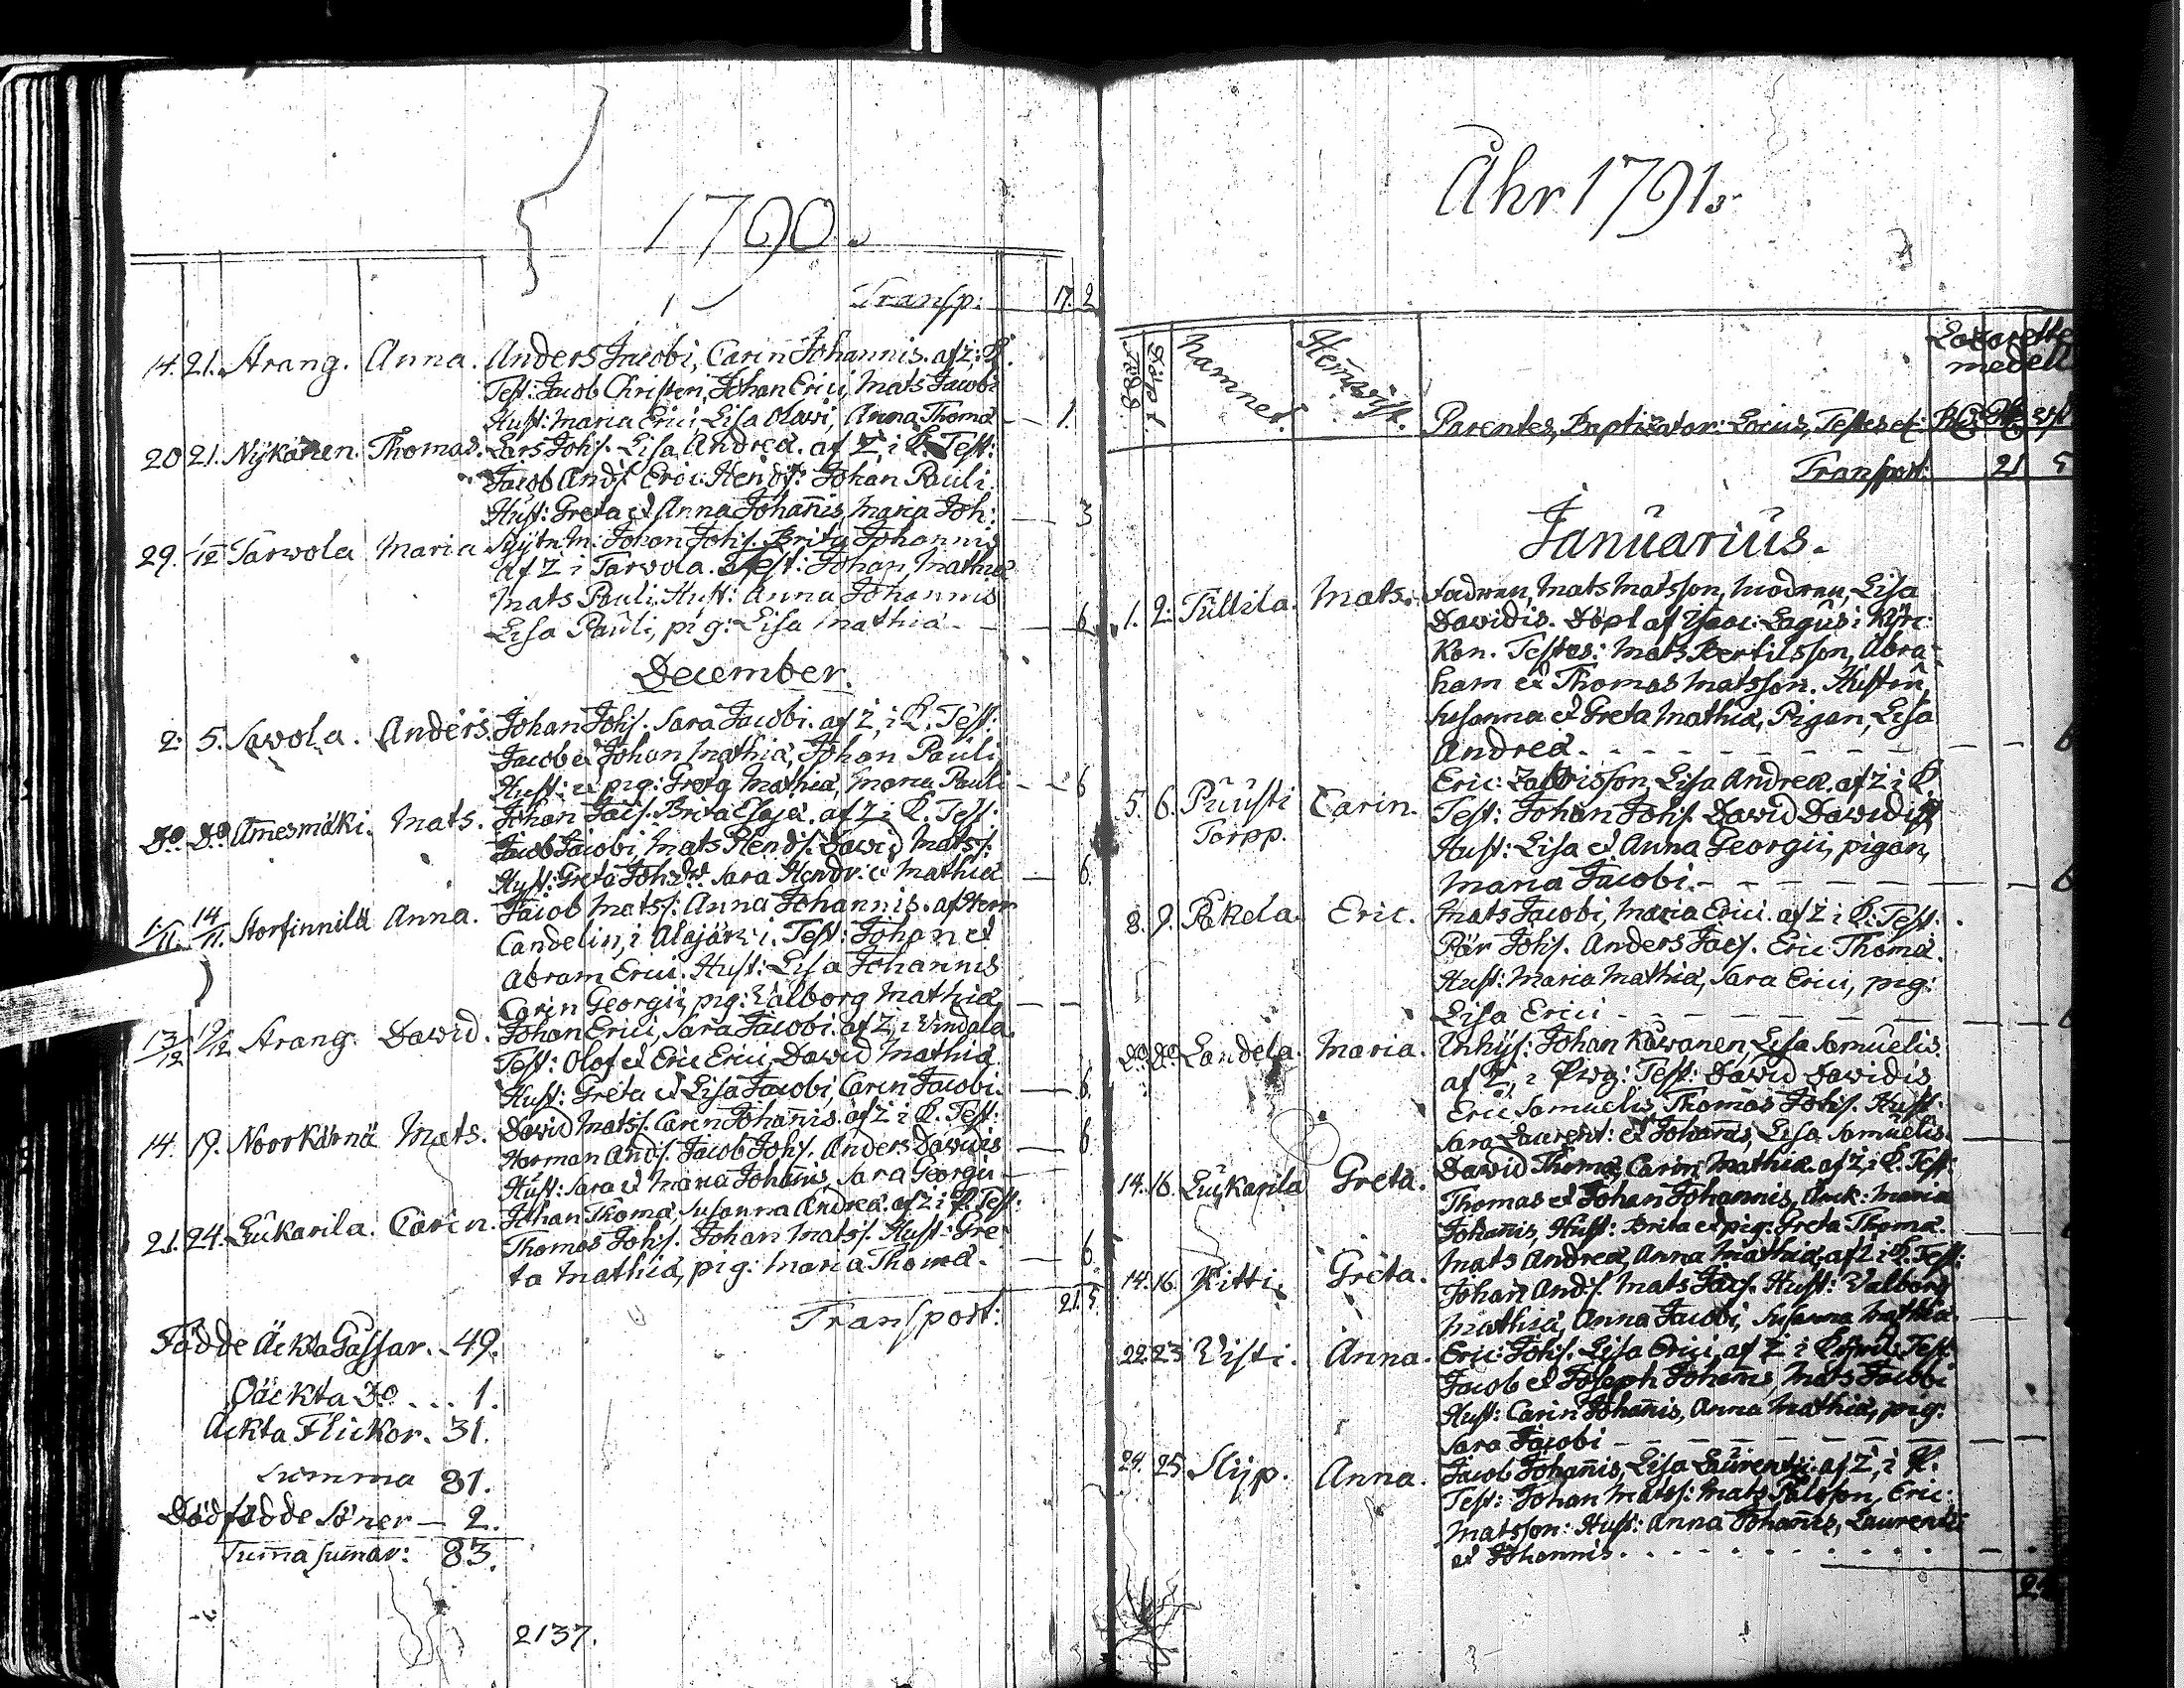 1790.
Transp: 17. 2
14. 21. Arang. Anna. Anders Jacobi, Carin Johannis. af Z. i K.
Test: Jacob Christeri, Johan Erici, Mats Jacobi
Hust: Maria Erici, Lisa Olavi, Anna Thomæ — 1.
20 21. Nÿkänen. Thomas. Lars Johs. Lisa Andreæ. af Z. i K. Test:
Jacob Ands. Eric Hends. Johan Pauli.
Hust: Greta et Anna Johan̄is, Maria Joh: — 3
29. 1/12 Tarvola Maria Johan Johs. Brita Johannis
af Z i Tarvola. Test: Johan Mathiæ
Mats Pauli, Hust: Anna Johannis
Lisa Pauli, pig: Lisa Mathiæ — — 6
December.
2. 5. Savola. Anders. Johan Johs. Sara Jacobi. af Z, i K. Test:
Jacob et Johan Mathiæ, Johan Pauli
Hust: et pig: Greta Mathiæ, Maria Pauli — 6
Do. Do. Am̄esmäki. Mats. Johan Jacs. Brita Esajæ. af Z. i K. Test:
Jacob Jacobi, Mats Hends. David Mats s.
Hust: Greta Sara Hendr. et Mathiæ — 6.
1/11. 14/11. Storfinnilä Anna. Jacob Mats s. Anna Johannis. af Herr
Candelin, i Alajärvi. Test: Johan et
Abram Erici. Hust: Lisa Johannis
Carin Georgii, pig: Valborg Mathiæ — —
13/12 19/12 Arang. David. Johan Erici, Sara Jacobi. af Z, i Vindala.
Test: Olof et Eric Erici, David Mathiæ
Hust: Greta et Lisa Jacobi, Carin Jacobi. — 6.
14. 19. Noorkärnä Mats. David Mats s. Carin Johan̄is. af Z i K. Test:
Herman Ands. Jacob Johs. Anders Davidis — 6
Hust: Sara et Maria Johan̄is, Sara Georgii —
21. 24. Lukarila. Carin. Johan Thomæ, Susanna Andreæ. af Z i K. Test:
Thomas Johs. Johan Mats s. Hust: Gre-
ta Mathiæ, pig: Maria Thomæ. — 6.
Transport: 21. 5.
Födde Äckta Gåssar. . 49.
Oäckta Do . . . 1.
Äckta Flickor. 31.
Summa 81.
Dödfödde Söner — 2.
Sum̄a sum̄ar: 83.
2137.
Åhr 1791.
Född. Döpt. Namnet. Hemvist. Parentes, Baptizator. Locus, Testes et:
Lazaretts
medell
Transport: 21. 5
Januarius.
1. 2. Tullila. Mats. Fadren, Mats Matsson, Modren, Lisa
Davidis. Döpt af Isaac Lagus i Kÿrc-
kon. Testes: Mats Bertilsson, Abra-
ham et Thomas Matsson. Hustru
Susanna et Greta Mathiæ, Pigan, Lisa
Andreæ. - - - - — — 6
5. 6. Puusti Carin. Eric: Lisa Andreæ. af Z i K.
Torpp. Test: Johan Johs. David Davidis
Hust: Lisa et Anna Georgii, pigan,
Maria Jacobi. - - - — 6
8. 9. Påkela. Eric. Mats Jacobi, Maria Erici. af Z i K. Test:
Pär Johs. Anders Jacs. Eric Thomæ.
Hust: Maria Mathiæ, Sara Erici, pig:
Lisa Erici - - - — 6
Do. Do. Landela. Maria. Inhÿs: Johan Lisa Samuelis.
af Z, i Test: David Davidis
Eric Samuelis, Thomas Johs. Hust:
Sara Laurent: et Johan̄is, Lisa Samuelis. —
14. 16. Lukarila Greta. David Thomæ, Carin Mathiæ. af Z i K. Test:
Thomas et Johan Johannis, Maria
Johan̄is, Hust: Brita et pig: Greta Thomæ.
14. 16. Kitti. Greta. Mats Andreæ, Anna Mathiæ. af Z i K. Test:
Johan Ands. Mats Jacs. Hust: Valborg
Mathiæ, Anna Jacobi, Susanna Mathiæ
22. 23 Visti. Anna. Eric Johs. Lisa Erici. af Z i Test:
Jacob et Joseph Johan̄is, Mats Jacobi
Hust: Carin Johan̄is, Anna Mathiæ, pig:
Sara Jacobi - - - -
24. 25 Slÿp. Anna. Jacob Johan̄is, Lisa Laurentii. af Z, i K.
Test: Johan Mats s: Mats Pålsson, Eric
Matsson: Hust: Anna Johan̄is, Laurentii
et Johannis. . . . .